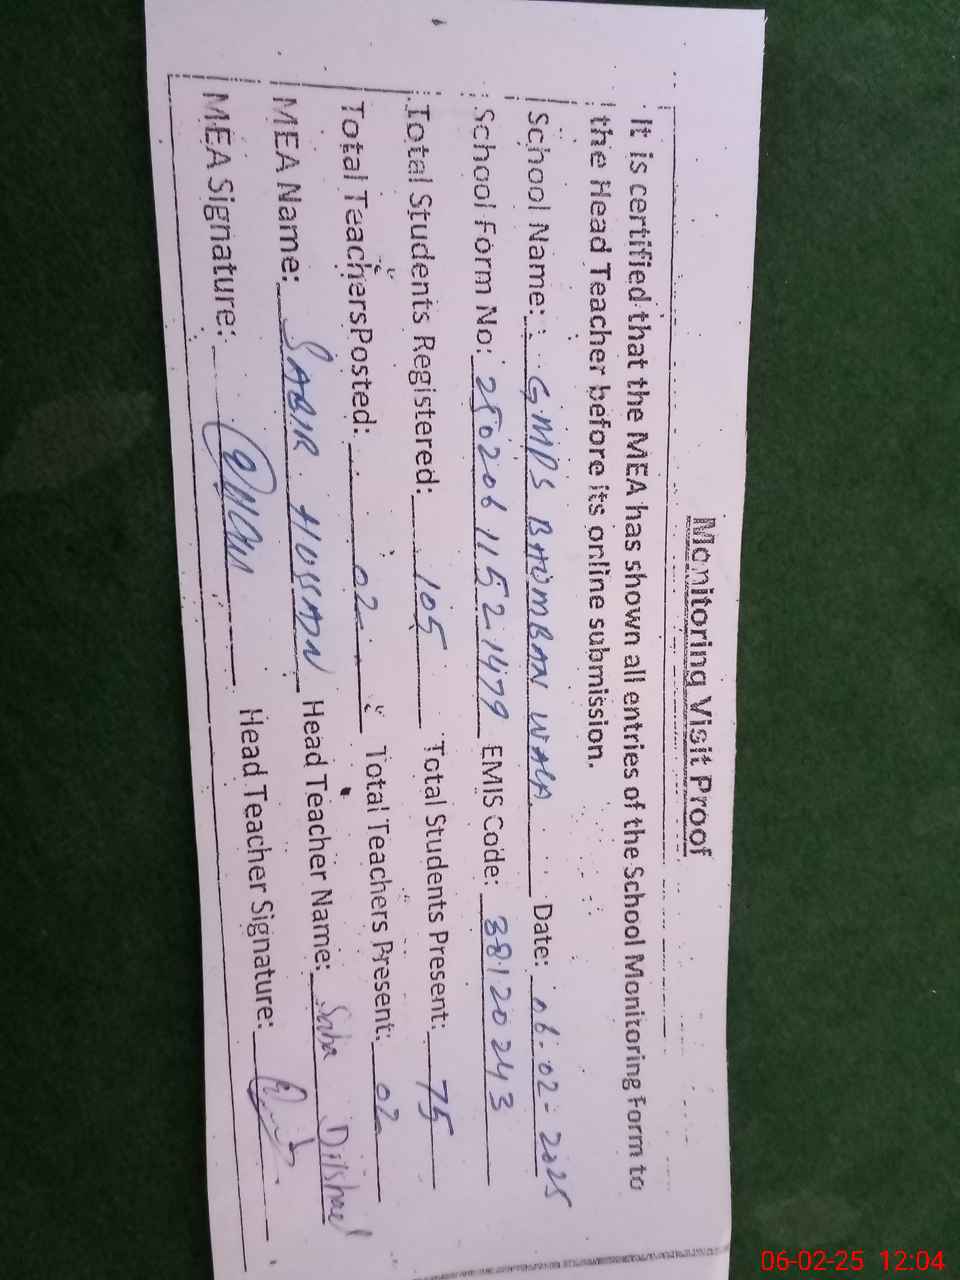 Monitoring Visit Proof
It is certified that the MEA has shown all entries of the School Monitoring Form to
the Head Teacher before its online submission.
School Name: GMPS BHOMBAN WALA Date: 06-02-2025
School Form No: 25020611521479 EMIS Code: 38120243
Total Students Registered: 105 Total Students Present: 75
Total Teachers Posted: 02 Total Teachers Present: 02
MEA Name: SABIR HUSSAIN Head Teacher Name: Saba Dilshad
MEA Signature: Head Teacher Signature:
06-02-25 12:04